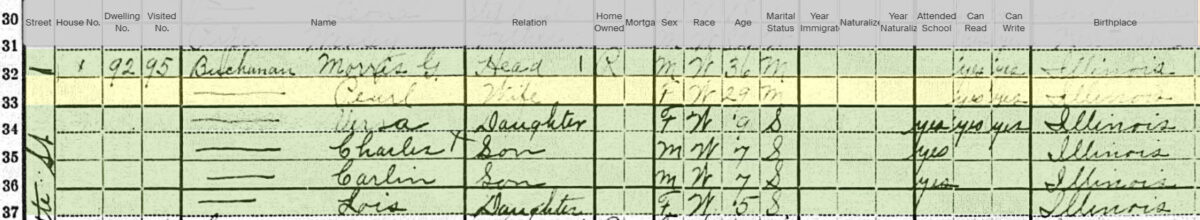 30 Street House No. Dwelling No. Visited No. Name Relation Home Owned Mortga Sex Race Age Marital Status Year Immigrat Naturalize Year Naturaliz Attended School Can Read Can Write Birthplace
31
32 92 95 Buchanan Morris G Head 1 R M W 36 M yes yes Illinois
33 Pearl Wife F W 29 M yes yes Illinois
34 Daughter F W 9 S yes yes yes Illinois
35 Charles X Son M W 7 S yes Illinois
36 Carlin Son M W 7 S yes Illinois
37 Lois Daughter F W 5 S Illinois